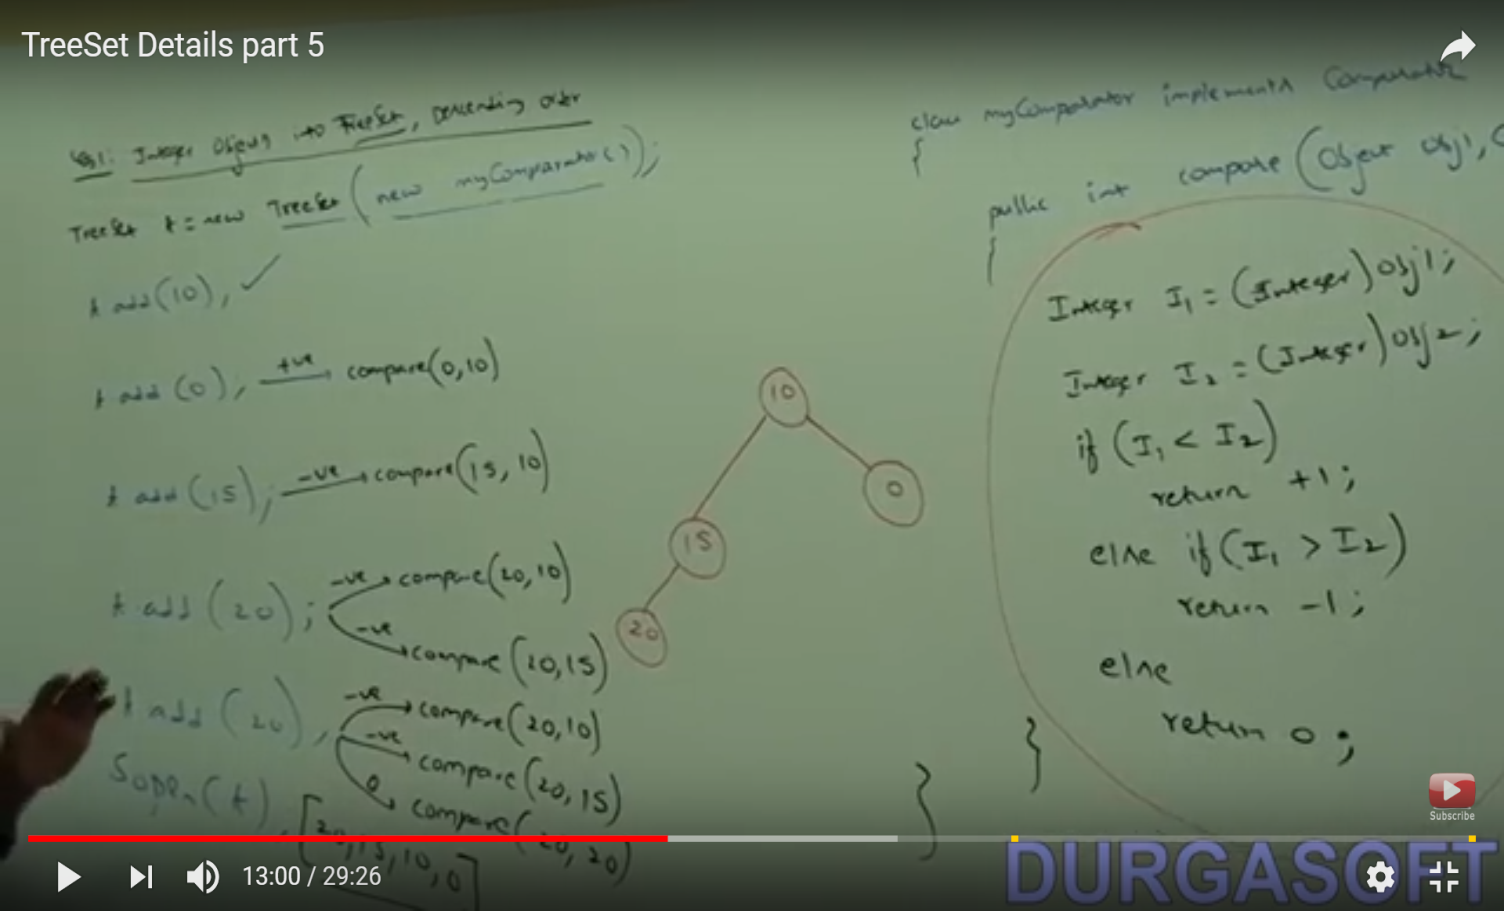 TreeSet Details part 5
Integer Objects into TreeSet, Descending order
TreeSet t = new TreeSet(new myComparator());
t add(10); ✓
t add(0); +ve → compare(0,10)
t add(15); -ve → compare(15, 10)
t add(20); -ve → compare(20,10)
-ve → compare(20,15)
t add(20); -ve → compare(20,10)
-ve → compare(20,15)
0 → compare(20,20)
Sopln(t); [20,15,10,0]
10
0
15
20
class myComparator implements Comparator
{
public int compare(Object obj1,
{
Integer I1 = (Integer)obj1;
Integer I2 = (Integer)obj2;
if (I1 < I2)
return +1;
else if(I1 > I2)
return -1;
else
return 0;
}
}
Subscribe
DURGASOFT
13:00 / 29:26